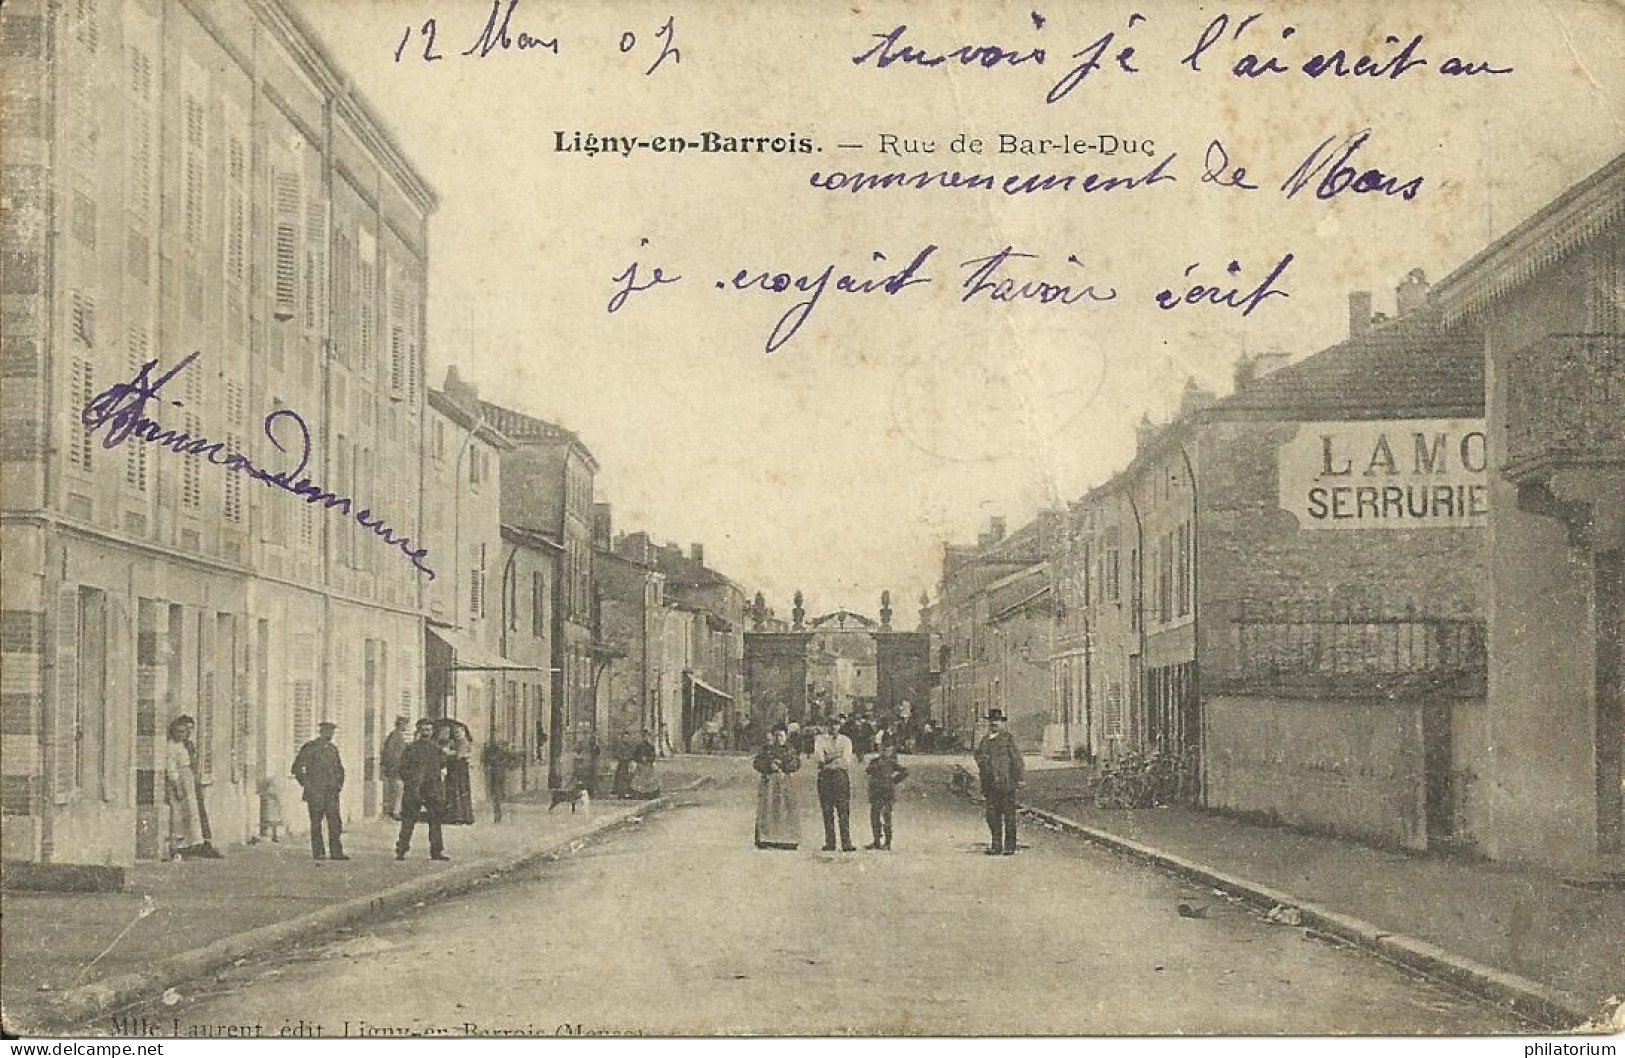 12 Mars 07
tu vois je l'ai ecrit au
Ligny-en-Barrois. — Rue de Bar-le-Duc
commenement de Mars
je croyait tavoir écrit
Demeure
LAMO
SERRURIE
Mlle Laurent, édit. Ligny-en-Barrois (Meuse)
delcampe.net
philatorium